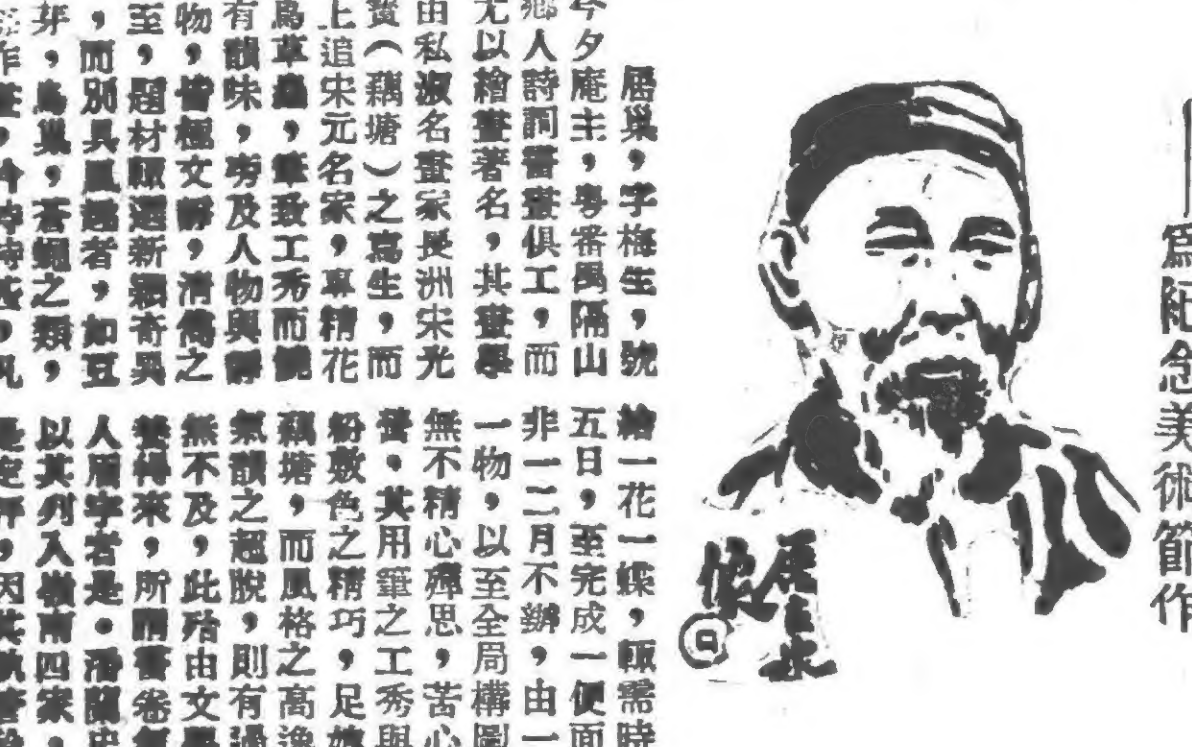 ——爲紀念美術節作
居巢，字梅生，號
今夕庵主，粵番禺隔山
鄉人詩詞書畫俱工，而
尤以繪畫著名，其畫學
由私淑名畫家長洲宋光
寶（藕塘）之寫生，而
上追宋元名家，專精花
鳥草蟲，筆致工秀而饒
有韻味，旁及人物與靜
物，皆極文靜，清儁之
至，題材輒選新穎奇異
，而別具風趣者，如豆
芽，鳥巢，蒼蠅之類，
作畫，
繪一花一蝶，輒需時
五日，至完成一便面
非一二月不辦，由一
一物，以至全局構圖
無不精心殫思，苦心
營。其用筆之工秀與
粉敷色之精巧，足媲
藕塘，而風格之高逸
氣韻之超脫，則有過
無不及，此殆由文學
養得來，所謂書卷氣
人眉宇者是。潘蘭史
以其列入嶺南四家，
是定評，因其執